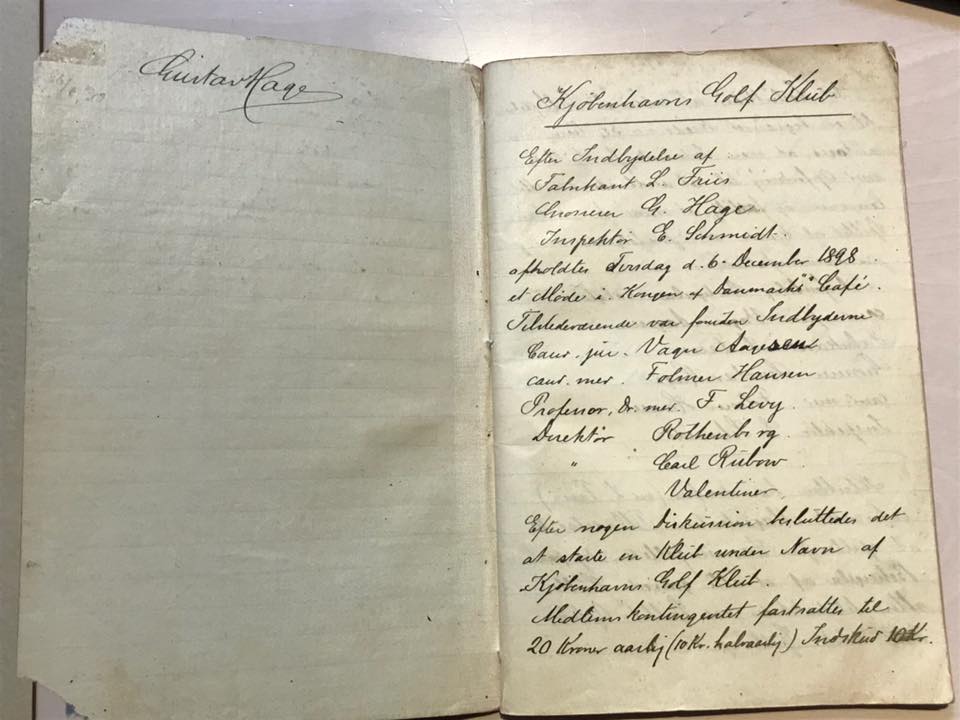 Gustav Hage
Kjøbenhavns Golf Klub
Efter Indbydelse af
Fabrikant L. Friis
Grosserer G. Hage
Inspektør E. Schmidt.
afholdtes Tirsdag d. 6. December 1898.
et Møde i "Kongen af Danmarks" Café.
Tilstedeværende var foruden Indbyderne
Cand. jur. Vagn Aagesen
cand. med. Folmer Hansen
Professor, Dr. med. F. Levy.
Direktør Rothenberg.
" Carl Rubow
Valentiner.
Efter nogen Diskussion besluttedes det
at starte en Klub under Navn af
Kjøbenhavns Golf Klub.
Medlemskontingentet fastsattes til
20 Kroner aarlig (10 Kr. halvaarlig.) Indskud 10 Kr.